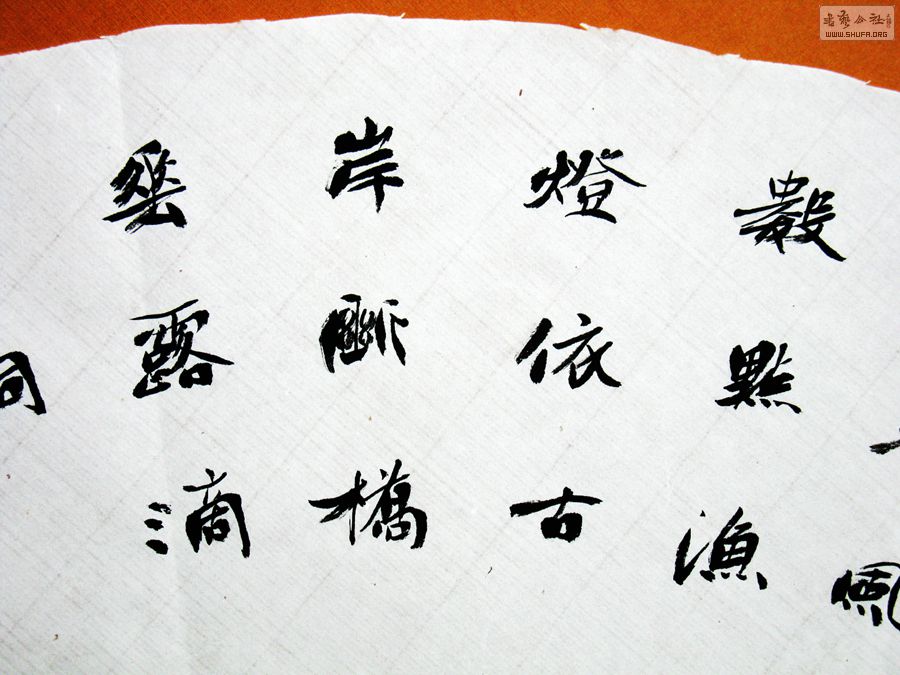 風
數點漁
燈依古
岸斷橋
垂露滴
書藝公社
WWW.SHUFA.ORG